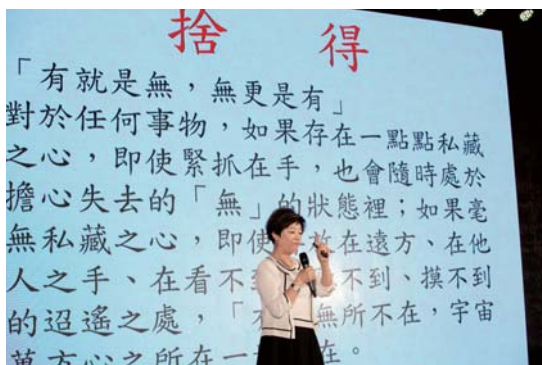 捨 得
「有就是無，無更是有」
對於任何事物，如果存在一點點私藏
之心，即使緊抓在手，也會隨時處於
擔心失去的「無」的狀態裡；如果毫
無私藏之心，即使 在遠方、在他
人之手、在看不 不到、摸不到
的迢遙之處，「 無所不在，宇宙
萬方心之所在一 在。